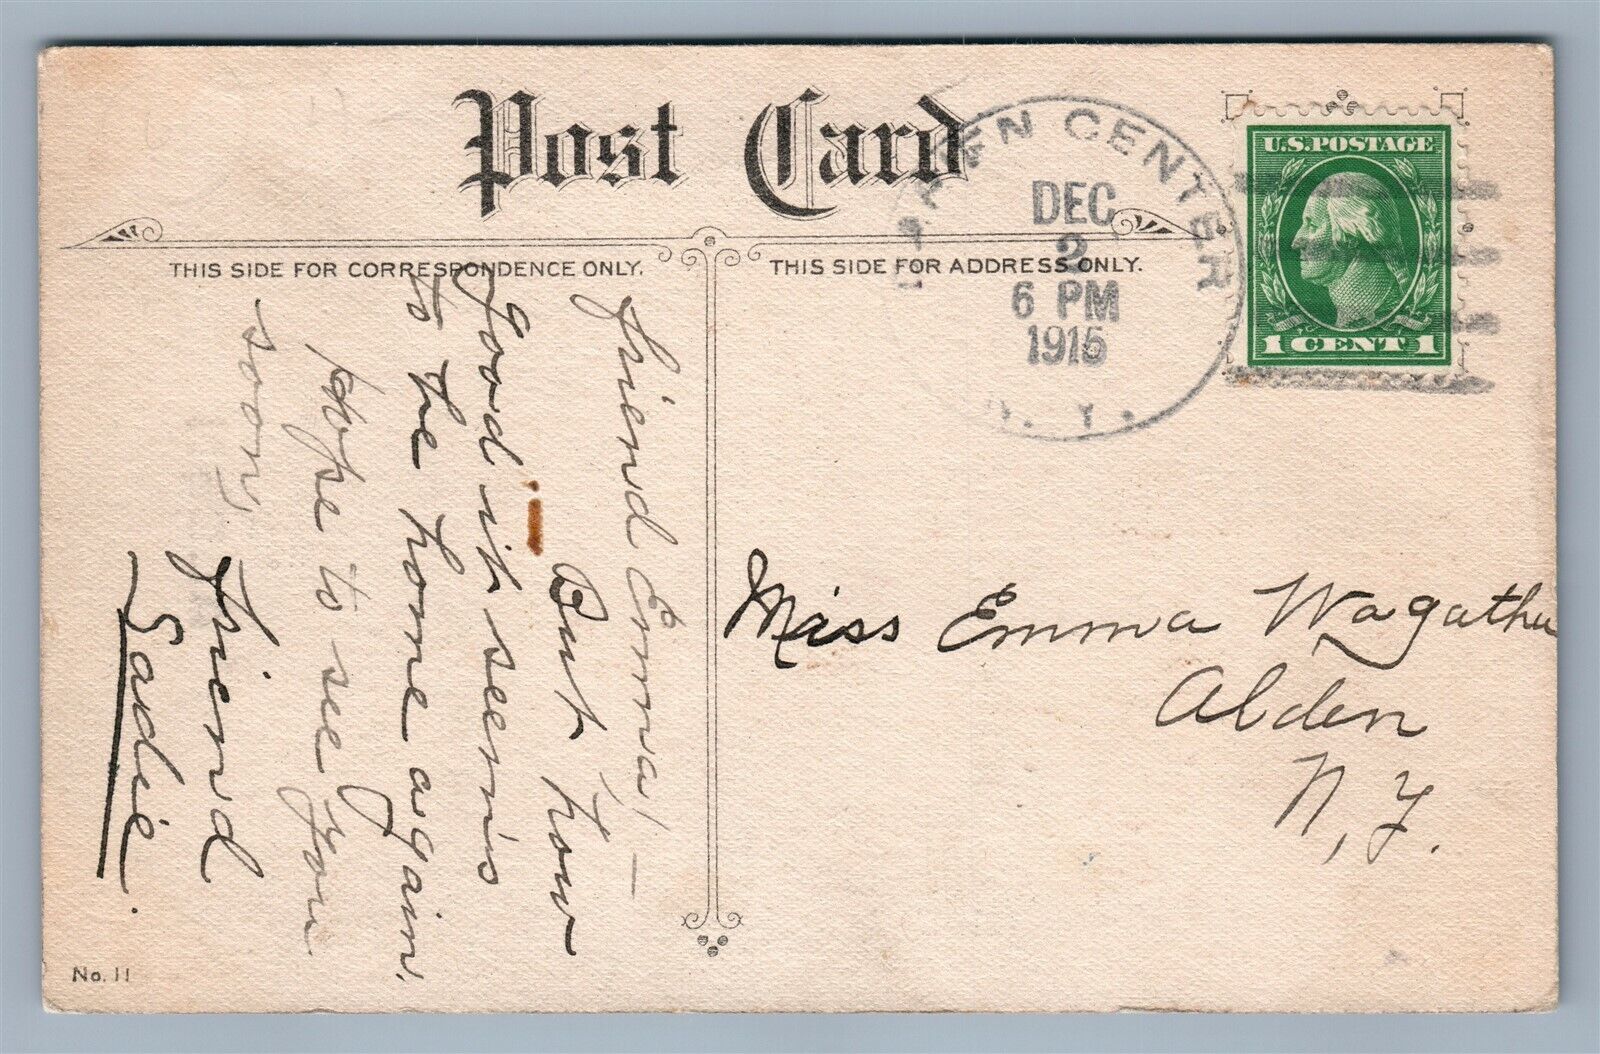 Post Card
THIS SIDE FOR CORRESPONDENCE ONLY.
THIS SIDE FOR ADDRESS ONLY.
CENTER
DEC
2
6 PM
1915
N. Y.
U.S. POSTAGE
1 CENT 1
Friend Emma! —
But how
good it seems
to be home again.
Hope to see you
soon,
Friend
Sadie.
Miss Emma
Alden
N, Y.
No. 11